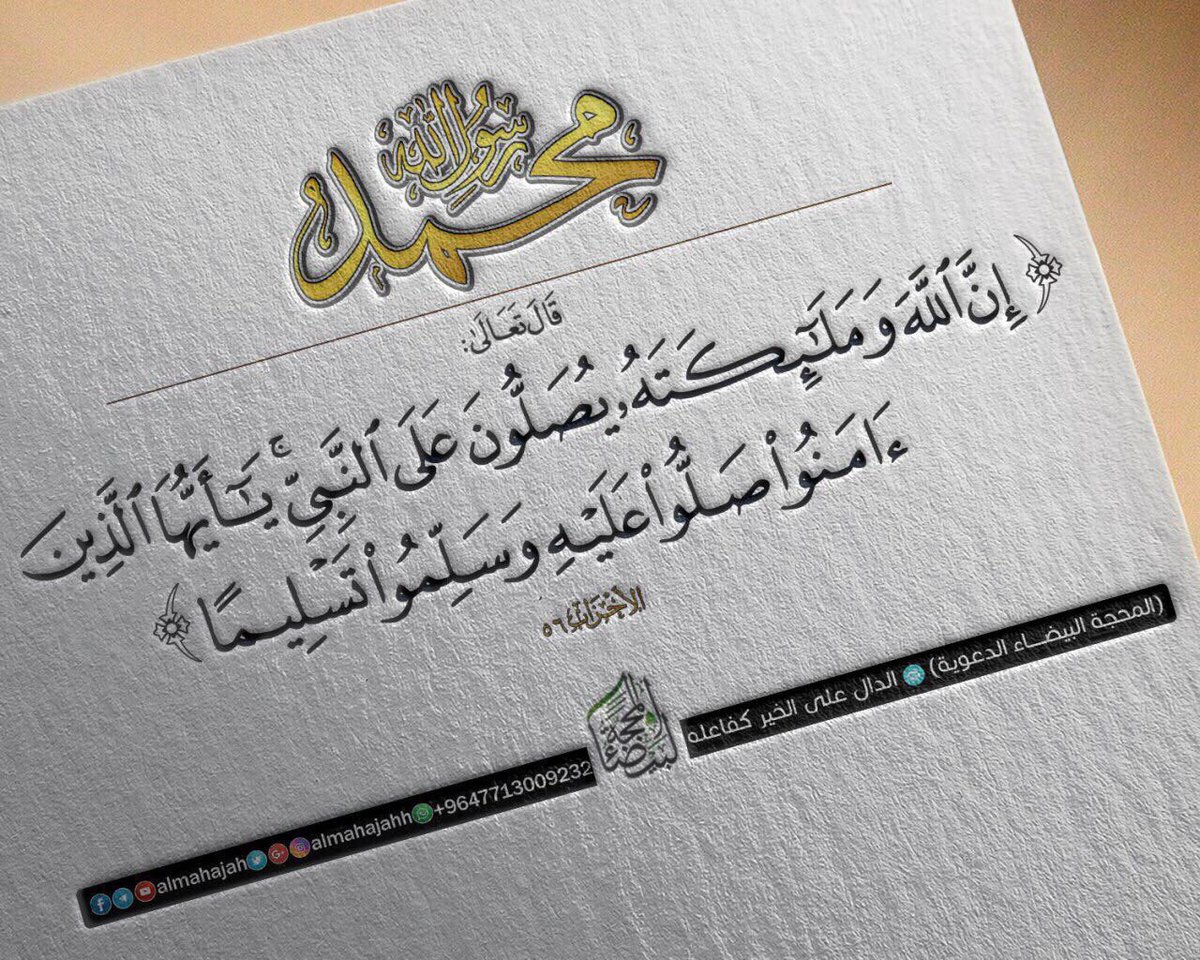 محمد رسول الله
قَالَ تَعَالَىٰ:
﴿إِنَّ ٱللَّهَ وَمَلَـٰٓئِكَتَهُۥ يُصَلُّونَ عَلَى ٱلنَّبِىِّ ۚ يَـٰٓأَيُّهَا ٱلَّذِينَ
ءَامَنُوا۟ صَلُّوا۟ عَلَيْهِ وَسَلِّمُوا۟ تَسْلِيمًا﴾
الأحزاب ٥٦
(المحجة البيضاء الدعوية) الدال على الخير كفاعله
المحجة البيضاء
almahajah almahajahh +9647713009232